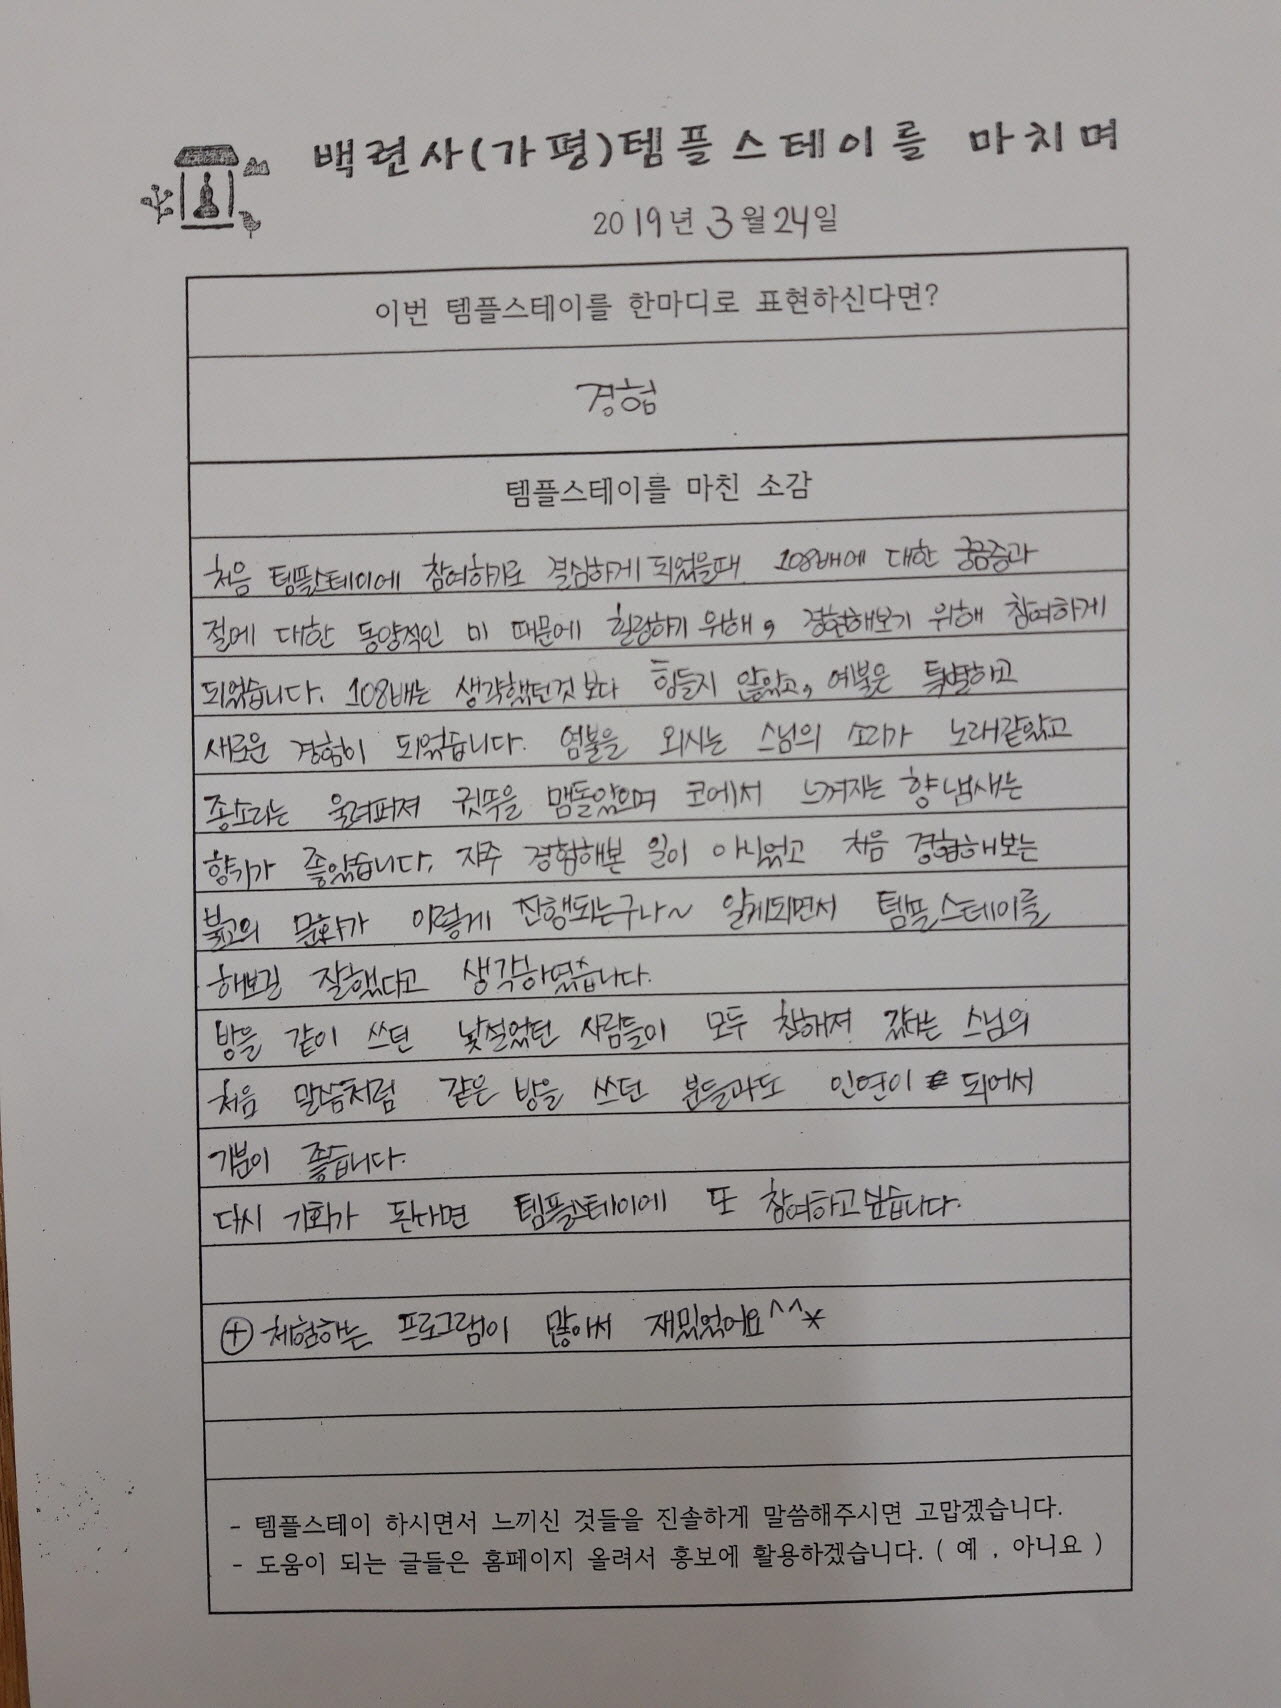 백련사(가평)템플스테이를 마치며
2019년 3월 24일
이번 템플스테이를 한마디로 표현하신다면?
경험
템플스테이를 마친 소감
처음 템플스테이에 참여하기로 결심하게 되었을때 108배에 대한 궁금증과
절에 대한 동양적인 미 때문에 힐링하기 위해, 경험해보기 위해 참여하게
되었습니다. 108배는 생각했던것 보다 힘들지 않았고, 예불은 특별하고
새로운 경험이 되었습니다. 염불을 외시는 스님의 소리가 노래같았고
종소리는 울려퍼져 귓뚜을 맴돌았으며 코에서 느껴지는 향 냄새는
향기가 좋았습니다. 자주 경험해본 일이 아니었고 처음 경험해보는
불교의 문화가 이렇게 진행되는구나~ 알게되면서 템플스테이를
해보길 잘했다고 생각하였습니다.
방을 같이 쓰던 낯설었던 사람들이 모두 친해져 갔다는 스님의
처음 말씀처럼 같은 방을 쓰던 분들과도 인연이 되어서
기분이 좋습니다.
다시 기회가 된다면 템플스테이에 또 참여하고싶습니다.
⊕ 체험하는 프로그램이 많아서 재밌었어요^^*
- 템플스테이 하시면서 느끼신 것들을 진솔하게 말씀해주시면 고맙겠습니다.
- 도움이 되는 글들은 홈페이지 올려서 홍보에 활용하겠습니다. ( 예 , 아니요 )